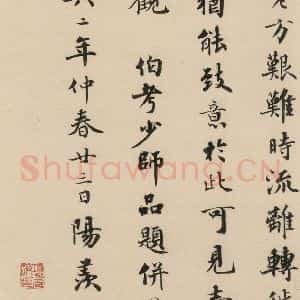 方艱難時流離轉徙
猶能致意於此可見
觀 伯考少師品題併
二年仲春廿三日陽羨
Shufawang.CN